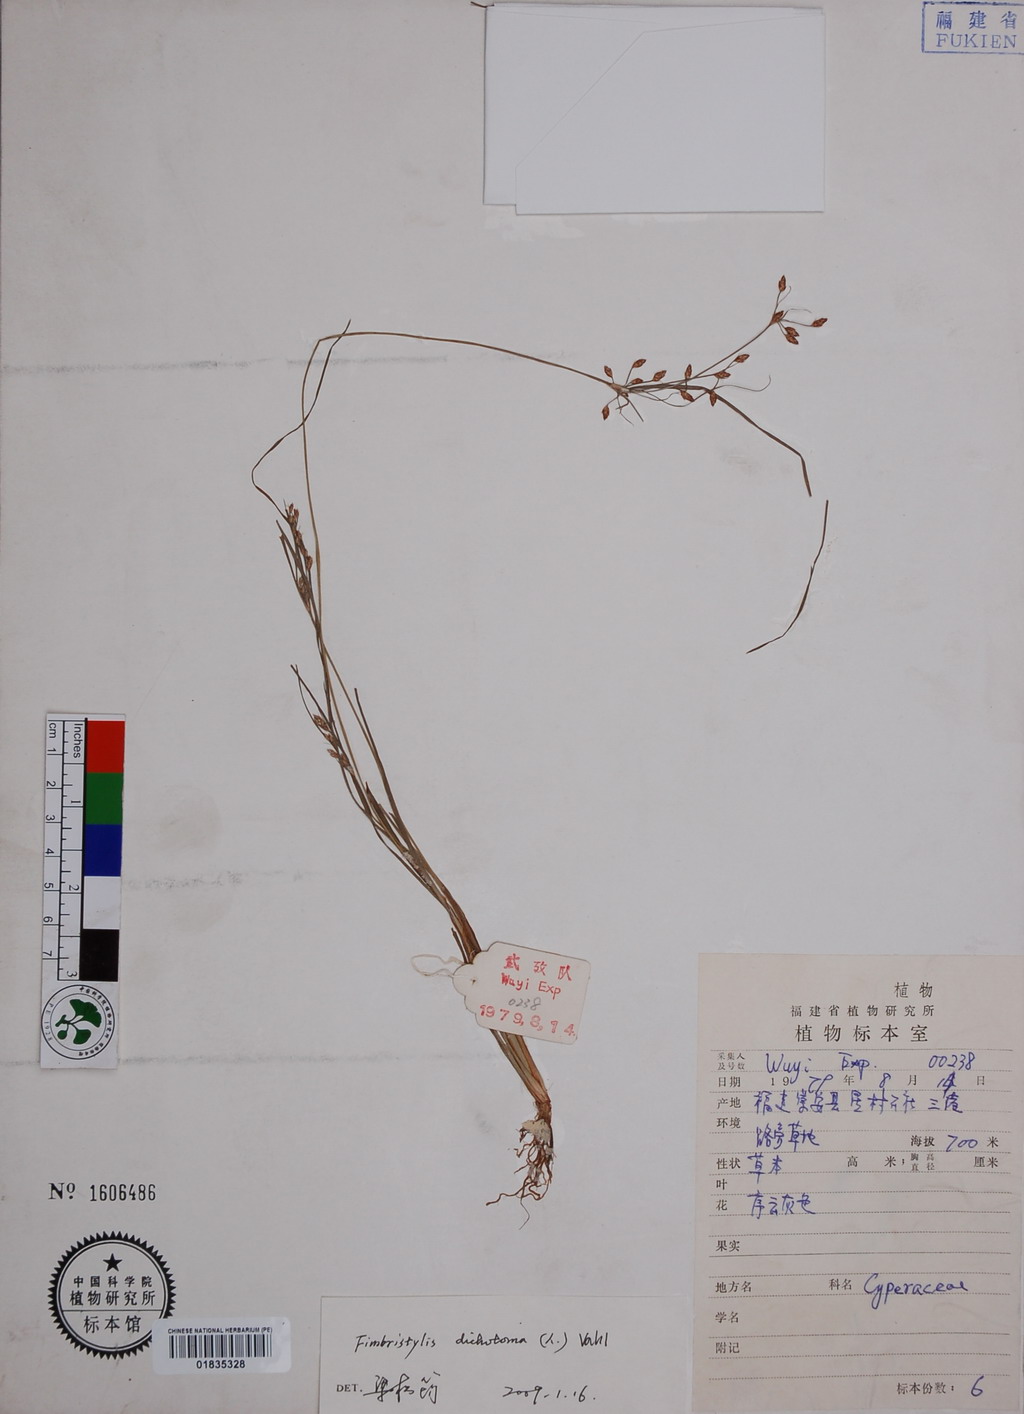 福建省
FUKIEN
武攷队
Wuyi Exp
0238
1979,8,14.
inches
cm
1
2
3
4
5
6
7
1
2
3
植物
福建省植物研究所
植物标本室
采集人及号数 Wuyi Exp. 00238
日期 1979年 8月 14日
产地 福建崇安县星村公社三港
环境
路旁草地 海拔 700 米
性状 草本 高 米; 胸高直径 厘米
叶
花
果实
地方名 科名 Cyperaceae
学名
附记
标本份数: 6
Nº 1606486
中国科学院
植物研究所
标本馆
CHINESE NATIONAL HERBARIUM (PE)
01835328
Fimbristylis dichotoma (L.) Vahl
DET. 2009.1.16.